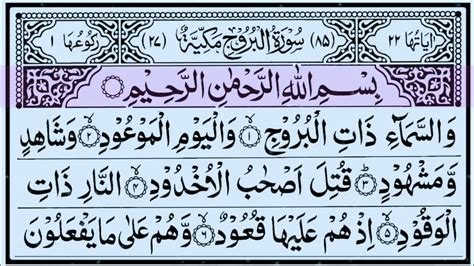 اٰیَاتُهَا ۲۲ (۸۵) سُوْرَةُ الْبُرُوْجِ مَكِّیَّةٌ (۲۷) رُكُوْعُهَا ۱
بِسْمِ اللّٰهِ الرَّحْمٰنِ الرَّحِیْمِ
وَ السَّمَآءِ ذَاتِ الْبُرُوْجِ ۱ وَالْیَوْمِ الْمَوْعُوْدِ ۲ وَشَاهِدٍ
وَّمَشْهُوْدٍ ۳ قُتِلَ اَصْحٰبُ الْاُخْدُوْدِ ۴ النَّارِ ذَاتِ
الْوَقُوْدِ ۵ اِذْ هُمْ عَلَیْهَا قُعُوْدٌ ۶ وَّهُمْ عَلٰی مَا یَفْعَلُوْنَ